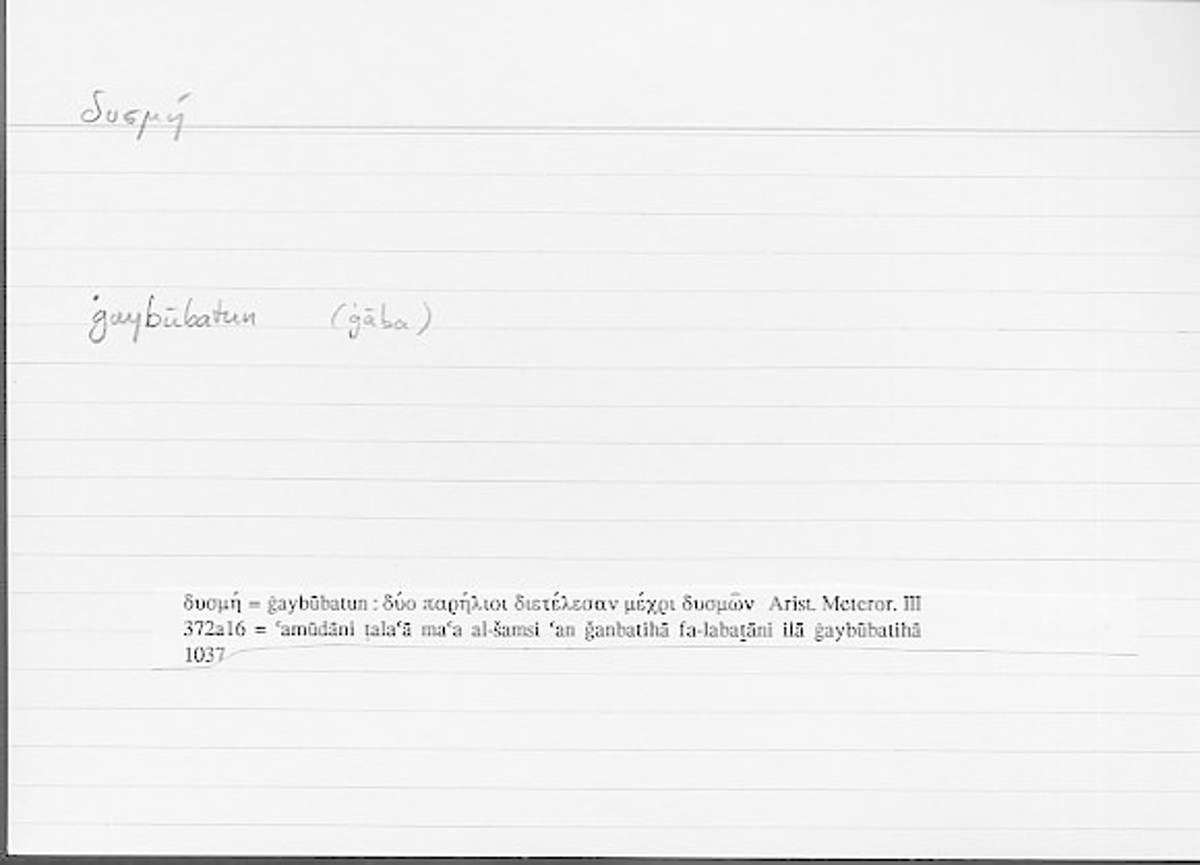 δυσμή
ġaybūbatun (ġāba)
δυσμή = ġaybūbatun : δύο παρήλιοι διετέλεσαν μέχρι δυσμῶν Arist. Meteror. III
372a16 = ʿamūdāni ṭalaʿā maʿa al-šamsi ʿan ǧanbatihā fa-labaṯāni ilā ġaybūbatihā
1037